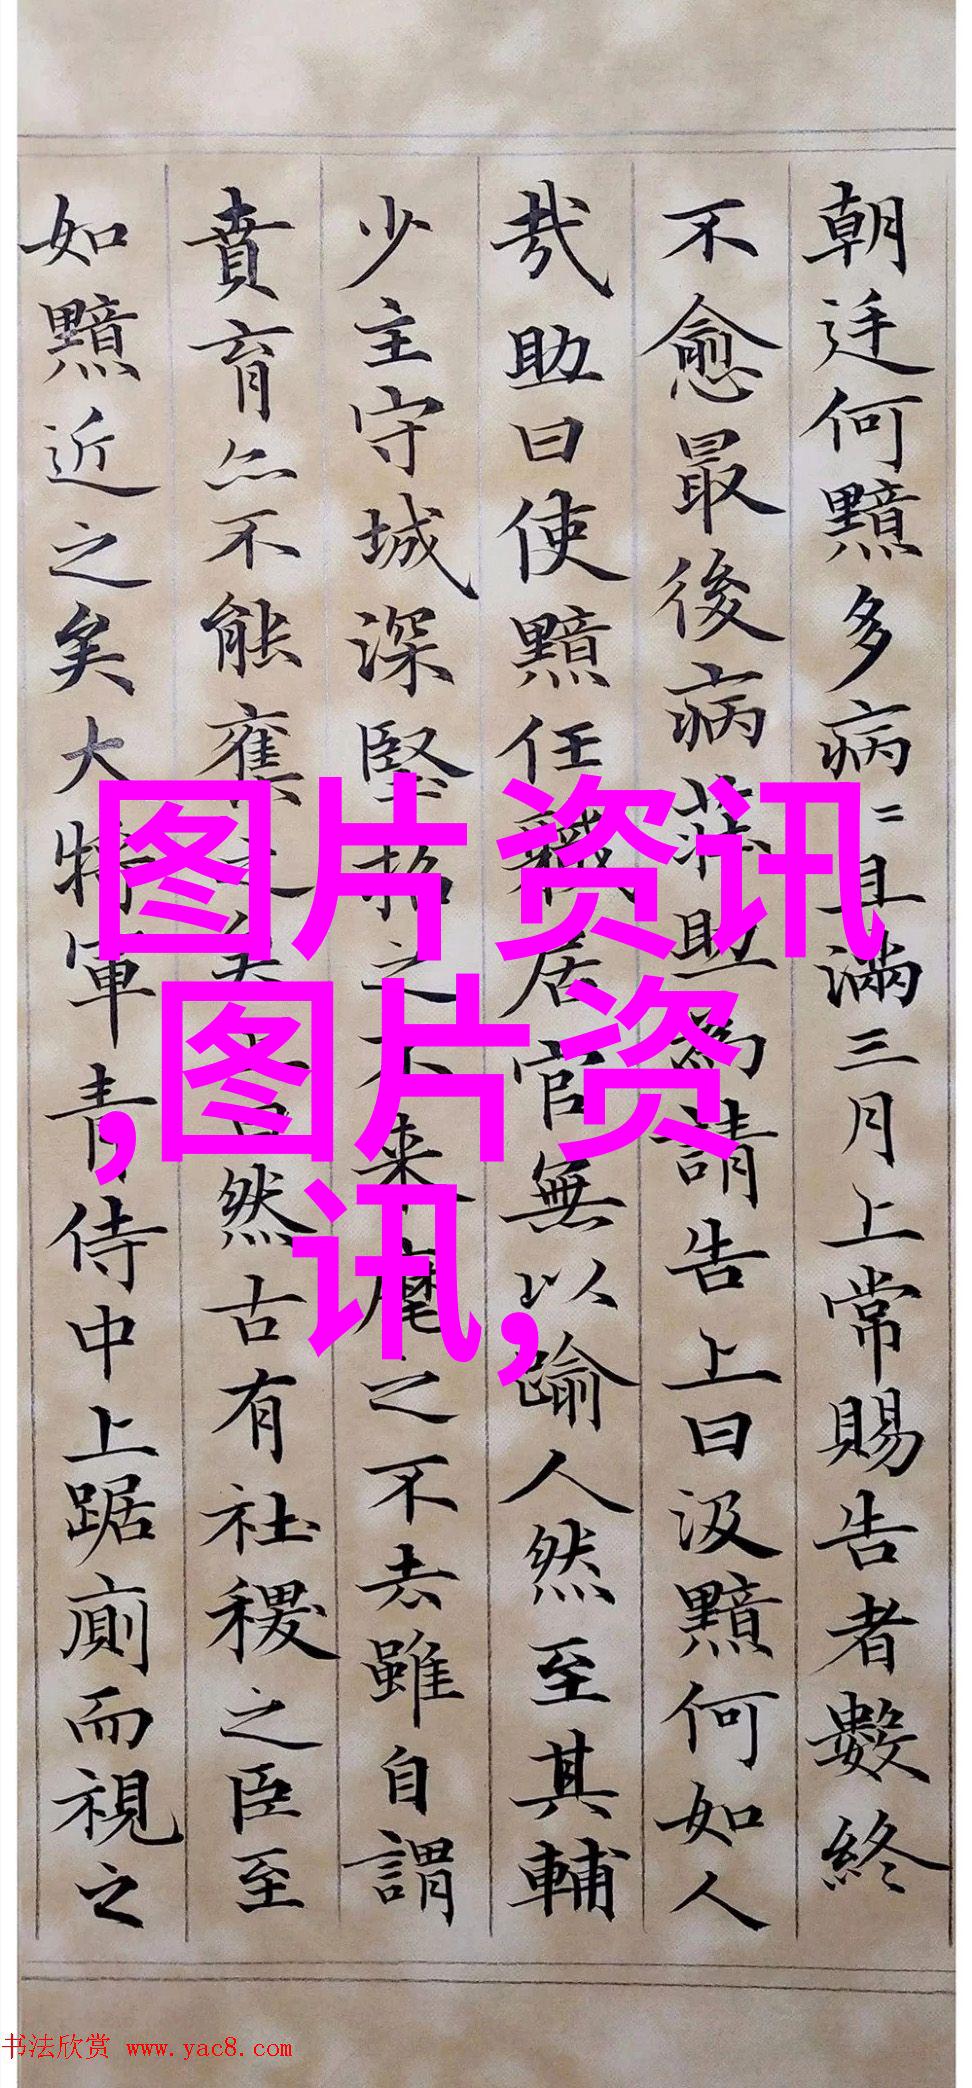 朝廷何黯多病二且滿三月上常賜告者數終
不愈最後病莊助為請告上曰汲黯何如人
哉助曰使黯任職居官無以踰人然至其輔
少主守城深堅招之不来麾之不去雖自謂
賁育亦不能奪之矣上曰然古有社稷之臣至
如黯近之矣大將軍青侍中上踞廁而視之
图片资讯
,图片资
讯,
书法欣赏 www.yac8.com